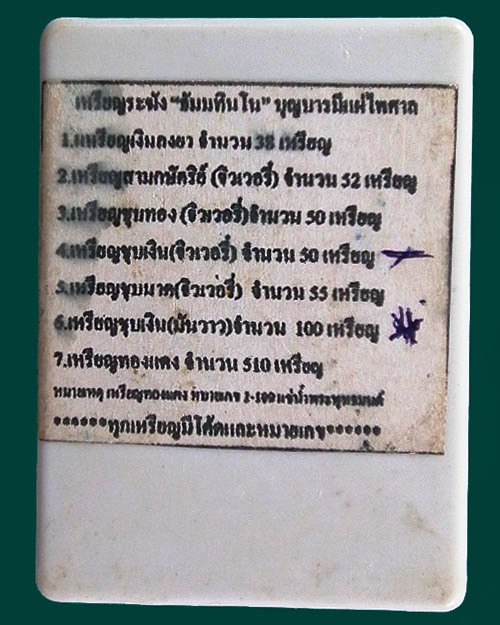 เหรียญระฆัง "ธัมมทินโน" บุญบารมีแผ่ไพศาล
1.เหรียญเงินลงยา จำนวน 38 เหรียญ
2.เหรียญสามกษัตริย์ (จิวเวอรี่) จำนวน 52 เหรียญ
3.เหรียญชุบทอง (จิวเวอรี่)จำนวน 50 เหรียญ
4.เหรียญชุบเงิน(จิวเวอรี่) จำนวน 50 เหรียญ
5.เหรียญชุบนาค(จิวเวอรี่) จำนวน 55 เหรียญ
6.เหรียญชุบเงิน(มันวาว)จำนวน 100 เหรียญ
7.เหรียญทองแดง จำนวน 510 เหรียญ
หมายเหตุ เหรียญทองแดง หมายเลข 1-109 แช่น้ำพระพุทธมนต์
******ทุกเหรียญมีโค้ดและหมายเลข******